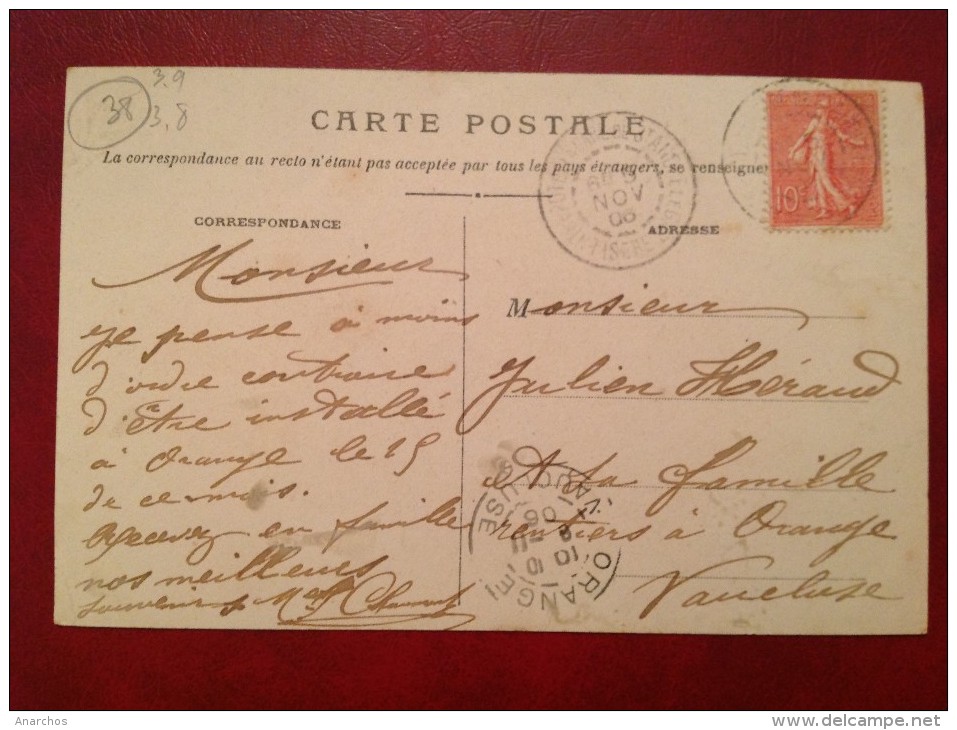 38
3.9
3.8
CARTE POSTALE
La correspondance au recto n'étant pas acceptée par tous les pays étrangers, se renseigne
CORRESPONDANCE
ADRESSE
NOV
06
ISERE
10c
Monsieur
Je pense à moins
d'ordre contraire
d'être installé
à Orange le 15
de ce mois.
Recevez en famille
nos meilleurs
souvenirs
Monsieur
Julien Héraud
et sa famille
rentiers à Orange
Vaucluse
ORANGE
VAUCLUSE
Anarchos
www.delcampe.net